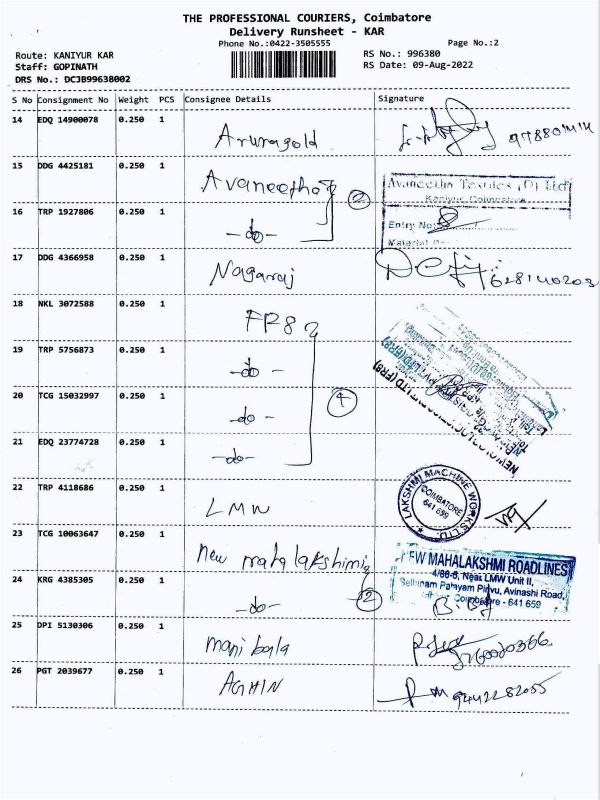 THE PROFESSIONAL COURIERS, Coimbatore
Delivery Runsheet - KAR
Phone No.:0422-3505555
Page No.:2
Route: KANIYUR KAR
RS No.: 996380
Staff: GOPINATH
RS Date: 09-Aug-2022
DRS No.: DCJB99638002
S No Consignment No Weight PCS Consignee Details Signature
14 EDQ 14900078 0.250 1 Aruragold
15 DDG 4425181 0.250 1 Avaneetha 2
Avaneetha Textiles (P) Ltd
Kaniyur, Coimbatore
16 TRP 1927806 0.250 1 -do-
Entry No: 8
17 DDG 4366958 0.250 1 Nagaraj
18 NKL 3072588 0.250 1 FR8
19 TRP 5756873 0.250 1 -do-
20 TCG 15032997 0.250 1 -do- 4
21 EDQ 23774728 0.250 1 -do-
22 TRP 4118686 0.250 1 LMW
LAKSHMI MACHINE WORKS LTD.
COIMBATORE
641 659
23 TCG 10063647 0.250 1 New mahalakshimi
NEW MAHALAKSHMI ROADLINES
4/86-5, Near LMW Unit II,
Sellanam Palayam Pirivu, Avinashi Road,
Coimbatore - 641 659
24 KRG 4385305 0.250 1 -do- 2
25 DPI 5130306 0.250 1 mani bala
26 PGT 2039677 0.250 1 AGHIN 9442282055